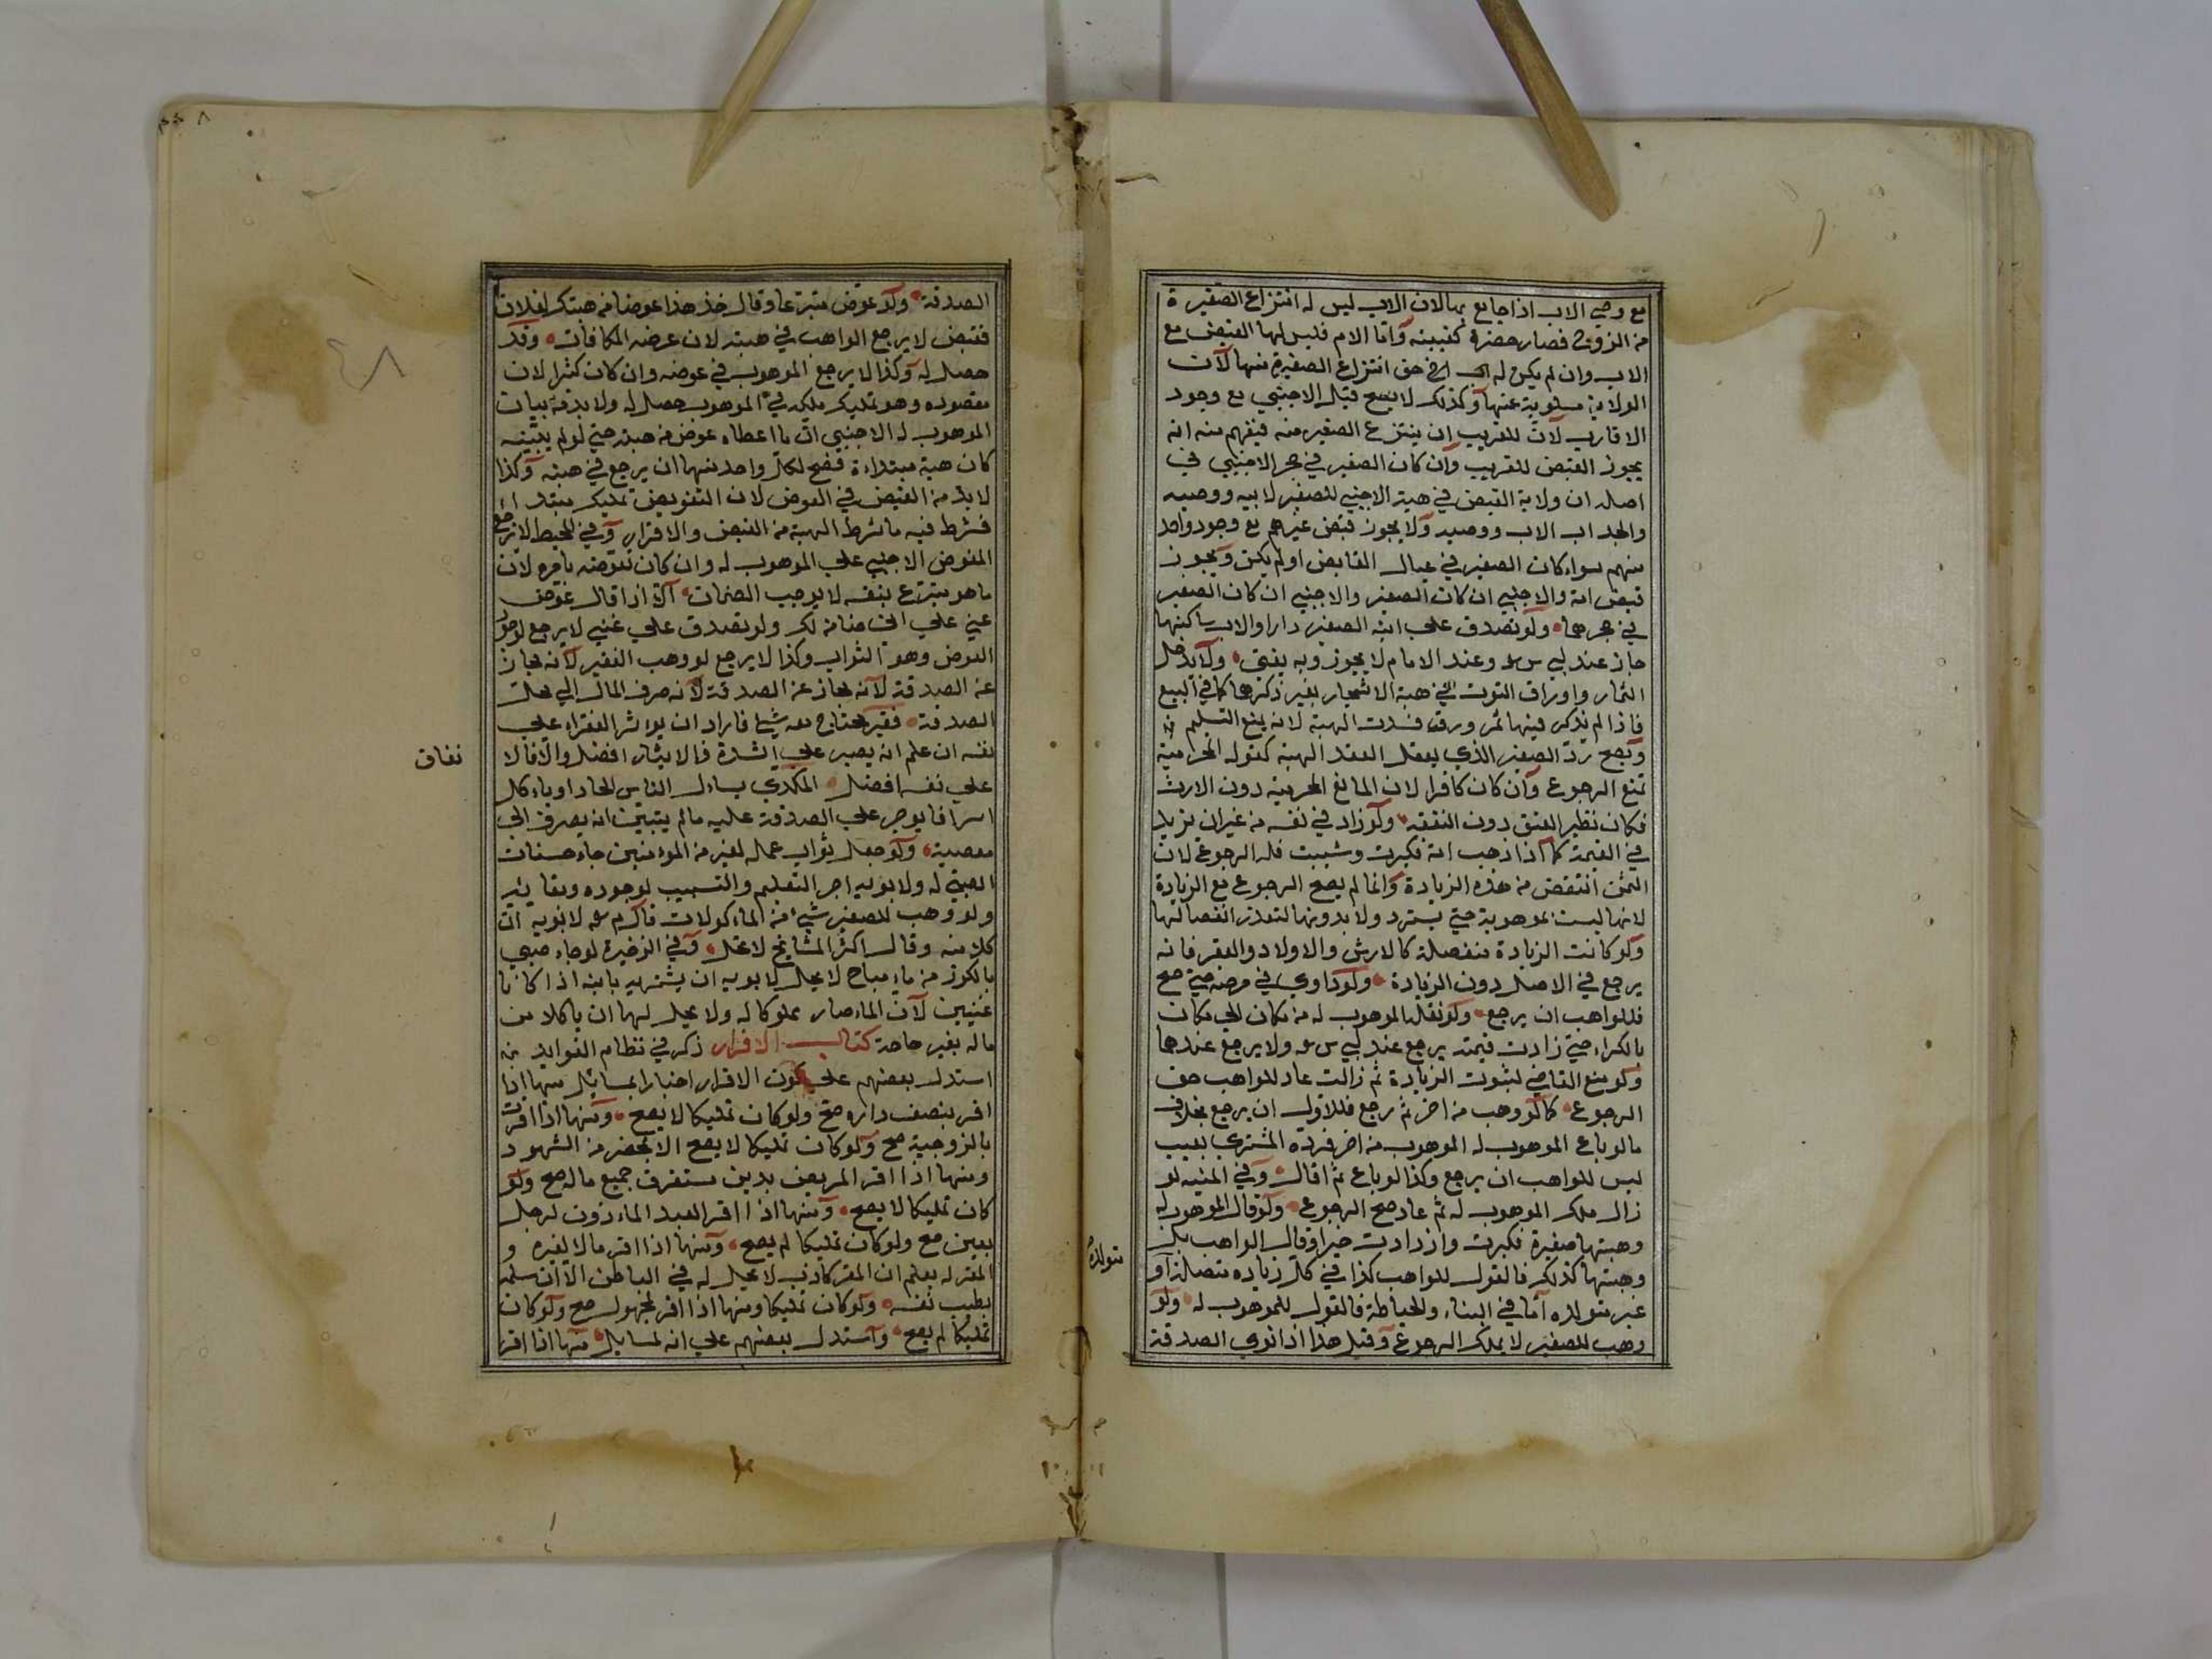 مع وصي الاب اذا جامع بها لان الاب ليس له انتزاع الصغيرة
من الزوج فصار حضرة كغيبته واما الام فليس لها القبض مع
الاب وان لم يكن له حق انتزاع الصغيرة منها لان
الولاية مسلوبة عنها وكذلك لا يصح قبل الاجنبي مع وجود
الاقارب لان للقريب ان ينتزع الصغير منه فيفهم منه انه
يجوز القبض للقريب وان كان الصغير في حجر الاجنبي في
اصله ان ولاية القبض في هبة الاجنبي للصغير لابيه ووصيه
والجد اب الاب ووصيه ولا يجوز قبض غيرهم مع وجود واحد
منهم سواء كان الصغير في عيال القابض او لم يكن ويجوز
قبض امه والاجنبي ان كان الصغير
في حجرهما ولو تصدق على ابنه الصغير دارا والاب ساكنها
جاز عند ابي س وعند الامام لا يجوز وبه يفتى ولا يدخل
الثمار واوراق التوت في هبة الاشجار بغير ذكرها كما في البيع
فاذا لم يذكر فيها ثمر ورق فسدت الهبة لانه يمنع التسليم
ويصح رد الصغير الذي يعقل العقد الهبة كقوله المحرمية
تمنع الرجوع وان كان كافرا لان المانع المحرمية دون الارث
فكان نظير العتق دون النفقة ولو زاد في نفسه من غير ان تزيد
في القيمة كما اذا ذهب امة فكبرت وشبت فله الرجوع لان
الثمن انتقص من هذه الزيادة وانما لم يصح الرجوع مع الزيادة
لانها ليست بموهوبة حتى يسترد ولا بدونها لتعذر انفصالها
ولو كانت الزيادة منفصلة كالارش والاولاد والعقر فانه
يرجع في الاصل دون الزيادة ولو داوي في مرضه حتى صح
فللواهب ان يرجع ولو نقل الموهوب له من مكان الى مكان
بالكراء حتى زادت قيمته يرجع عند ابي س ولا يرجع عندهما
ولو منع القاضي لثبوت الزيادة ثم زالت عاد للواهب حق
الرجوع كما لو وهب من اخر ثم رجع فللاول ان يرجع بخلاف
ما لو باع الموهوب له الموهوب من اخر فرده المشتري بعيب
ليس للواهب ان يرجع وكذا لو باع ثم اقال وفي المنيه لو
زال ملك الموهوب له ثم عاد صح الرجوع ولو قال الموهوب له
وهبتها صغيرة فكبرت وازدادت خيرا وقال الواهب بل
وهبتها كذلك فالقول للواهب كذا في كل زياده متصلة او
غير متولده اما في البناء والخياطة فالقول للموهوب له ولو
وهب للصغير لا يملك الرجوع وقيل هذا اذا نوى الصدقة
متولدة
الصدقة ولو عوض متبرعا وقال خذ هذا عوضا من هبتك لفلان
فقبض لا يرجع الواهب في هبته لان غرضه المكافات وقد
حصل له وكذا لا يرجع الموهوب في عوضه وان كان كثيرا لان
مقصوده وهو تمليك ملكه في الموهوب حصل له ولا بد من بيان
الموهوب له الاجنبي ان ما اعطاه عوض من هبته حتى لو لم يبينه
كان هبة مبتداءة فصح لكل واحد منهما ان يرجع في هبته وكذا
لا بد من القبض في العوض لان التعويض تمليك مبتدا
فشرط فيه ما شرط الهبة من القبض والافراز وفي المحيط لا يرجع
المعوض الاجنبي على الموهوب له وان كان تعوضه بامره لان
ما هو متبرع بنفسه لا يوجب الضمان الا اذا قال عوض
عني على اني ضامن لك ولو تصدق على غني لا يرجع لوجود
العوض وهو الثواب وكذا لا يرجع لو وهب الفقير لانه مجاز
عن الصدقة لانه مجاز عن الصدقة لانه صرف المال الى محل
الصدقة فقير محتاج معه شيء فاراد ان يوءثر الفقراء على
نفسه ان علم انه يصبر على الشدة فالايثار افضل والا فالا
نفاق
على نفسه افضل المكدي يساءل الناس الحاد اوياءكل
اسرافا يوجر على الصدقة عليه مالم يتبين انه يصرف الى
معصية ولو جعل ثواب عمله لغيره من الموءمنين جاء حسنات
الصبي له ولا بويه اجر التعليم والتسبيب لوجوده وبقائه
ولو وهب للصغير شيء من الماءكولات قال م لابويه ان
ياكلا منه وقال اكثر المشايخ لا يحل وفي الذخيرة لو جاء صبي
بالكوز من ماء مباح لا يحل لابويه ان يشربه بابنه اذا كانا
غنيين لان الماء صار مملوكا له ولا يحل لهما ان ياكلا من
ماله بغير حاجة كتاب الاقرار ذكر في نظام الفوايد من
استدل بعضهم على كون الاقرار اخبارا بمسايل منها اذا
اقر بنصف داره صح ولو كان تمليكا لا يصح ومنها اذا اقرت
بالزوجية صح ولو كان تمليكا لا يصح الا بمحضر من الشهود
ومنها اذا اقر المريض بدين مستغرق جميع ماله صح ولو
كان تمليكا لا يصح ومنها اذا اقر العبد الماءذون لرجل
بعين صح ولو كان تمليكا لم يصح ومنها اذا اقر مالا لغيره و
المقر له يعلم ان المقر كاذب لا يحل له في الباطن الا ان سلمه
بطيب نفسه ولو كان تمليكا ومنها اذا اقر لمجهول صح ولو كان
تمليكا لم يصح واستدل بعضهم على انه لمسايل منها اذا اقر